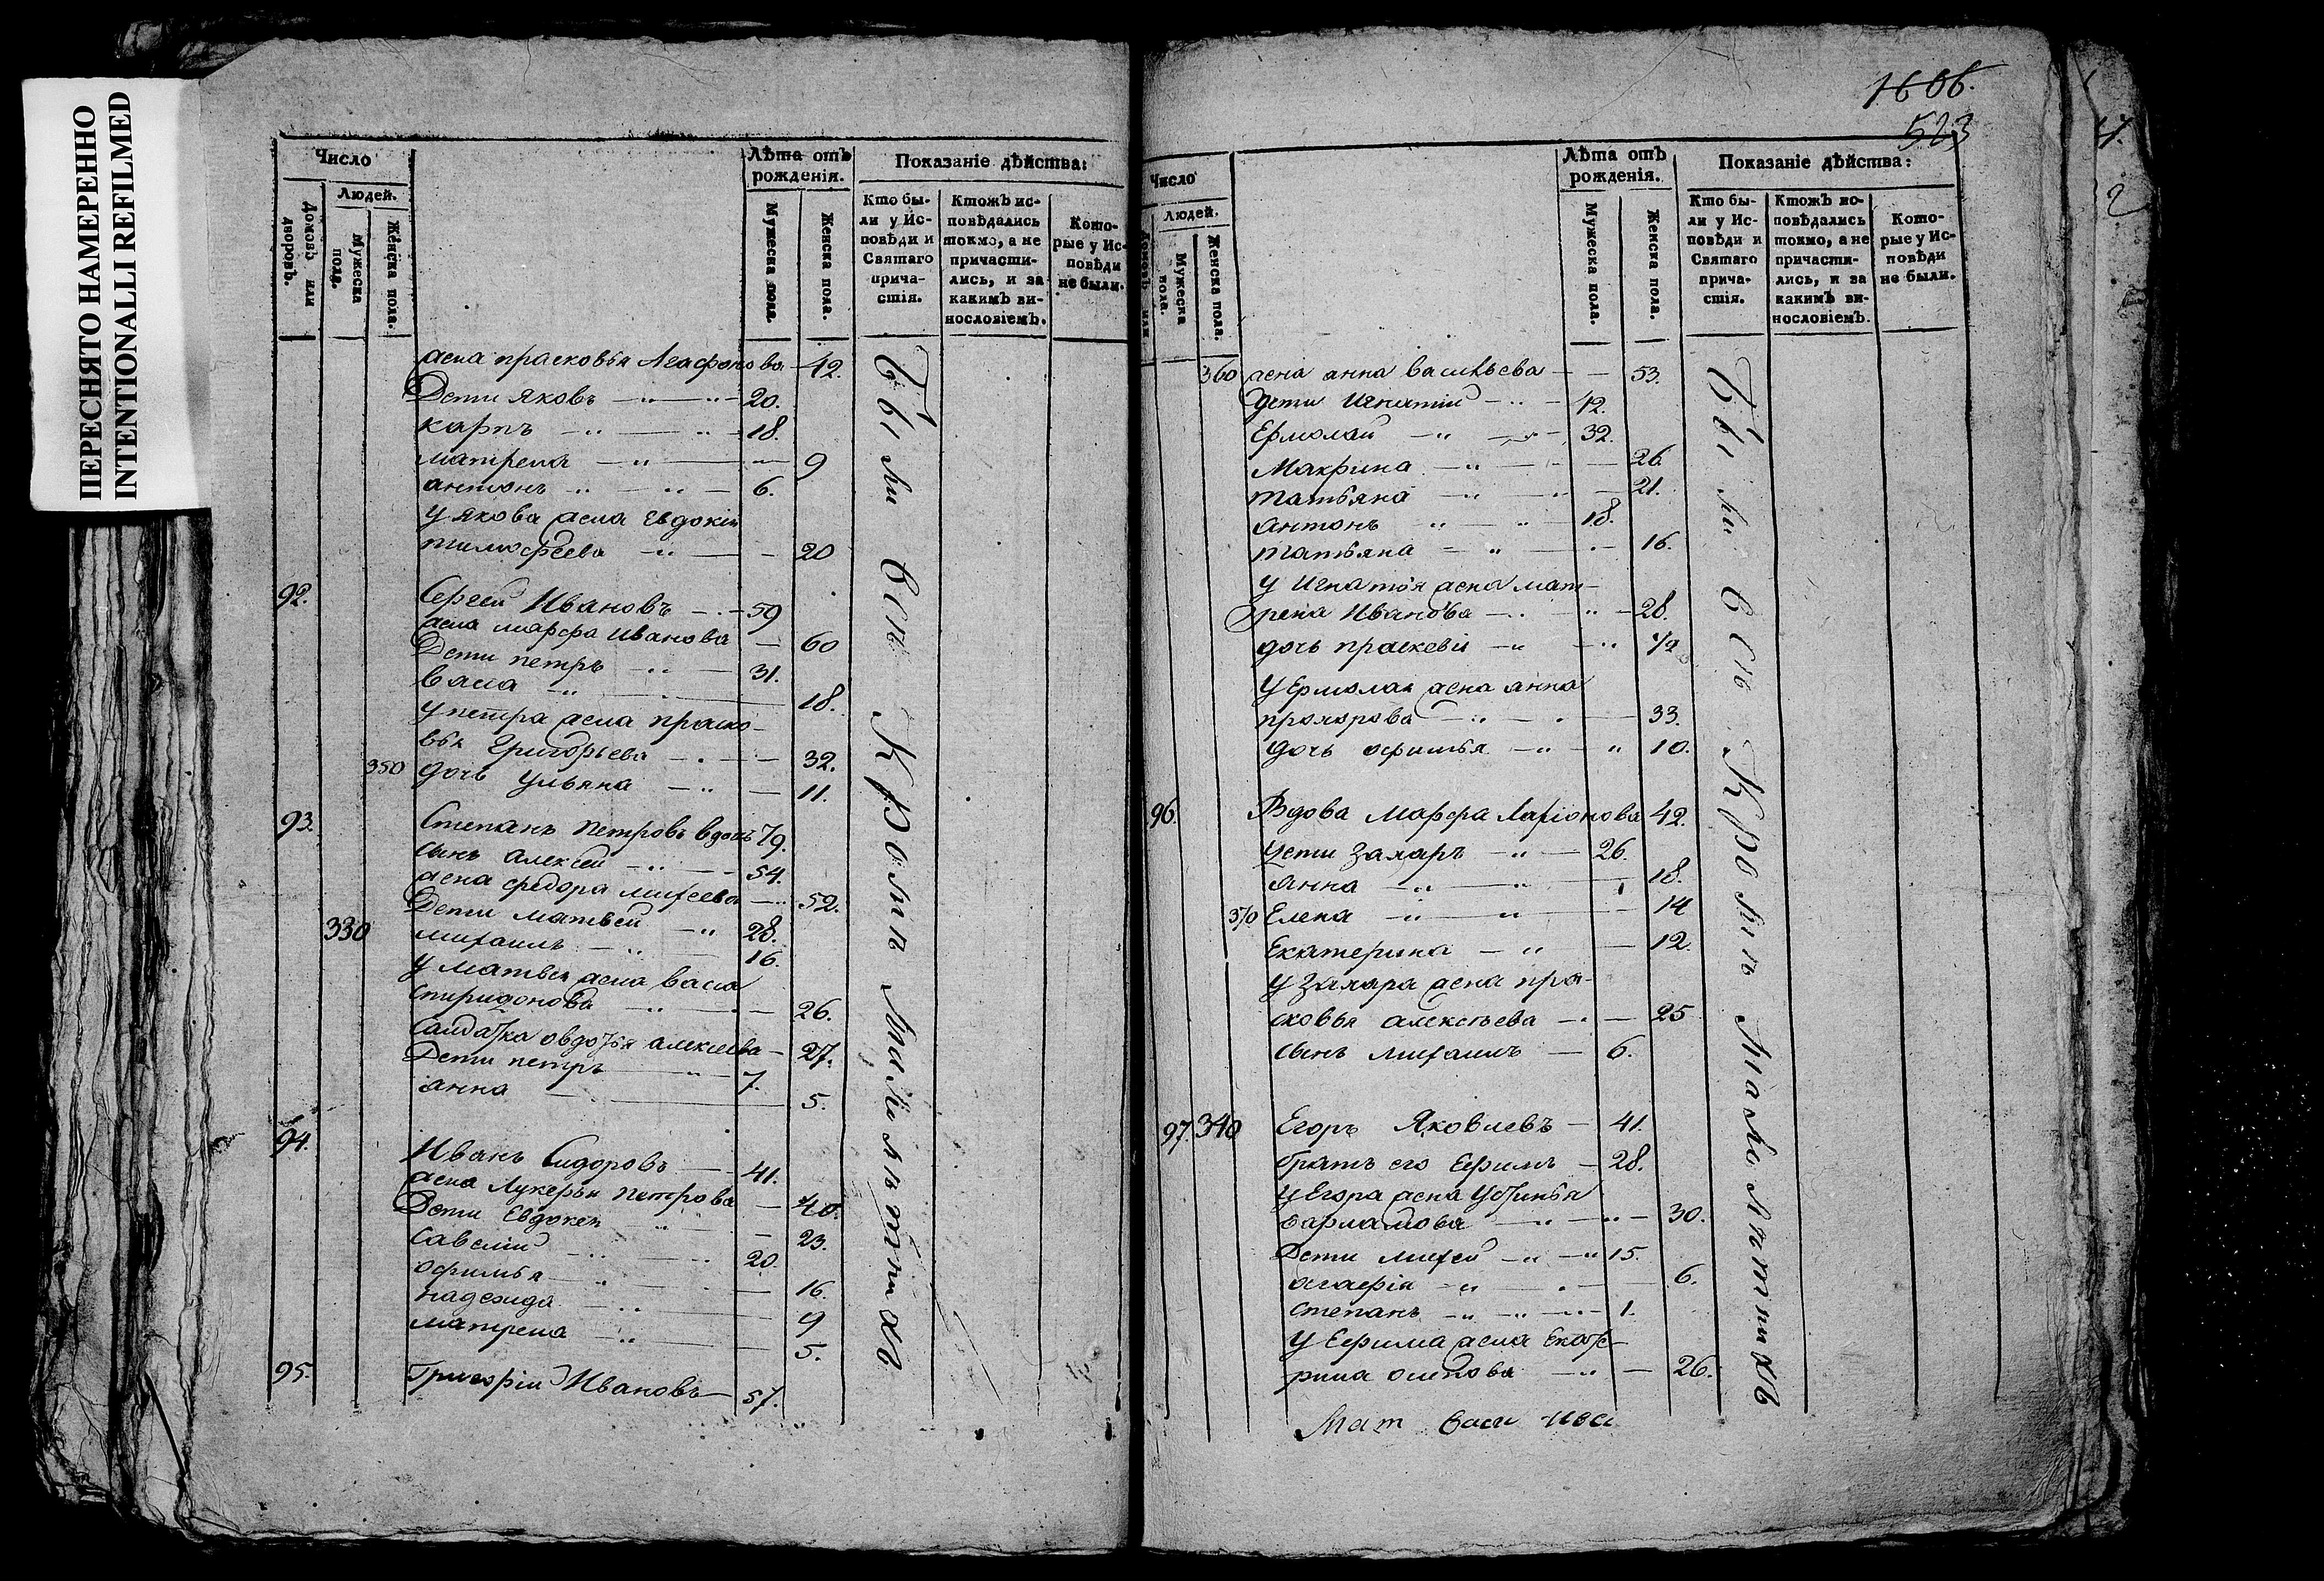 ПЕРЕСНЯТО НАМЕРЕННО
INTENTIONALLI REFILMED
Число
Людей.
Домовъ или дворовъ.
Мужеска пола.
Женска пола.
Лѣта отъ рожденія.
Мужеска пола.
Женска пола.
Показаніе дѣйства:
Кто были у Исповѣди и Святаго причастія.
Ктожъ исповѣдались токмо, а не причастились, и за какимъ винословіемъ.
Которые у Исповѣди не были.
жена прасковья Агафонова — 42.
Дети Яковъ — 20.
карпъ — 18.
матрена — 9
антонъ — 6.
у якова жена Евдокія
тимофеева — 20
92. Сергей Ивановъ — 59
жена марфа Иванова — 60
Дети петръ — 31.
васса — 18.
у петра жена праско-
вья Григорьева — 32.
350 дочь Ульяна — 11.
93. Степанъ Петровъ вдовъ 79.
сынъ алексей — 54.
жена федора михеева — 52.
330 Дети матвей — 28.
михаилъ — 16.
у матвея жена васса
спиридонова — 26.
Салдатка овдотья алексеева — 27.
Дети петръ — 7.
анна — 5.
94. Иванъ Сидоровъ — 41.
жена Лукерья петрова — 40.
Дети Евдокея — 23.
Савелій — 20
офимья — 16.
надежда — 9
матрена — 5.
95. Григорій Ивановъ — 57.
Были вси Кроми малолѣтнихъ
1606.
523
Число
Людей.
Домовъ или
Мужеска пола.
Женска пола.
Лѣта отъ рожденія.
Мужеска пола.
Женска пола.
Показаніе дѣйства:
Кто были у Исповѣди и Святаго причастія.
Ктожъ исповѣдались токмо, а не причастились, и за какимъ винословіемъ.
Которые у Исповѣди не были.
360 жена анна васильева — 53.
Дети Игнатій — 42.
Ермолай — 32.
Макрина — 26
татьяна — 21.
антонъ — 18.
татьяна — 16.
у Игнатья жена мат-
рена Иванова — 28.
дочь праскевія — 1/2
у Ермолая жена анна
прохорова — 33.
дочь офимья — 10.
96. Вдова марфа Ларіонова 42.
Дети Захаръ — 26.
анна — 18.
370 Елена — 14
Екатерина — 12.
у Захара жена пра-
сковья алексеева — 25
сынъ михаилъ — 6.
97. 340 Егоръ Яковлевъ — 41.
братъ его Ефимъ — 28.
у Егора жена Устинья
варламова — 30.
Дети михей — 15.
агафія — 6.
степанъ — 1.
у Ефима жена Екате-
рина осипова — 26.
Были вси Кроми малолѣтнихъ